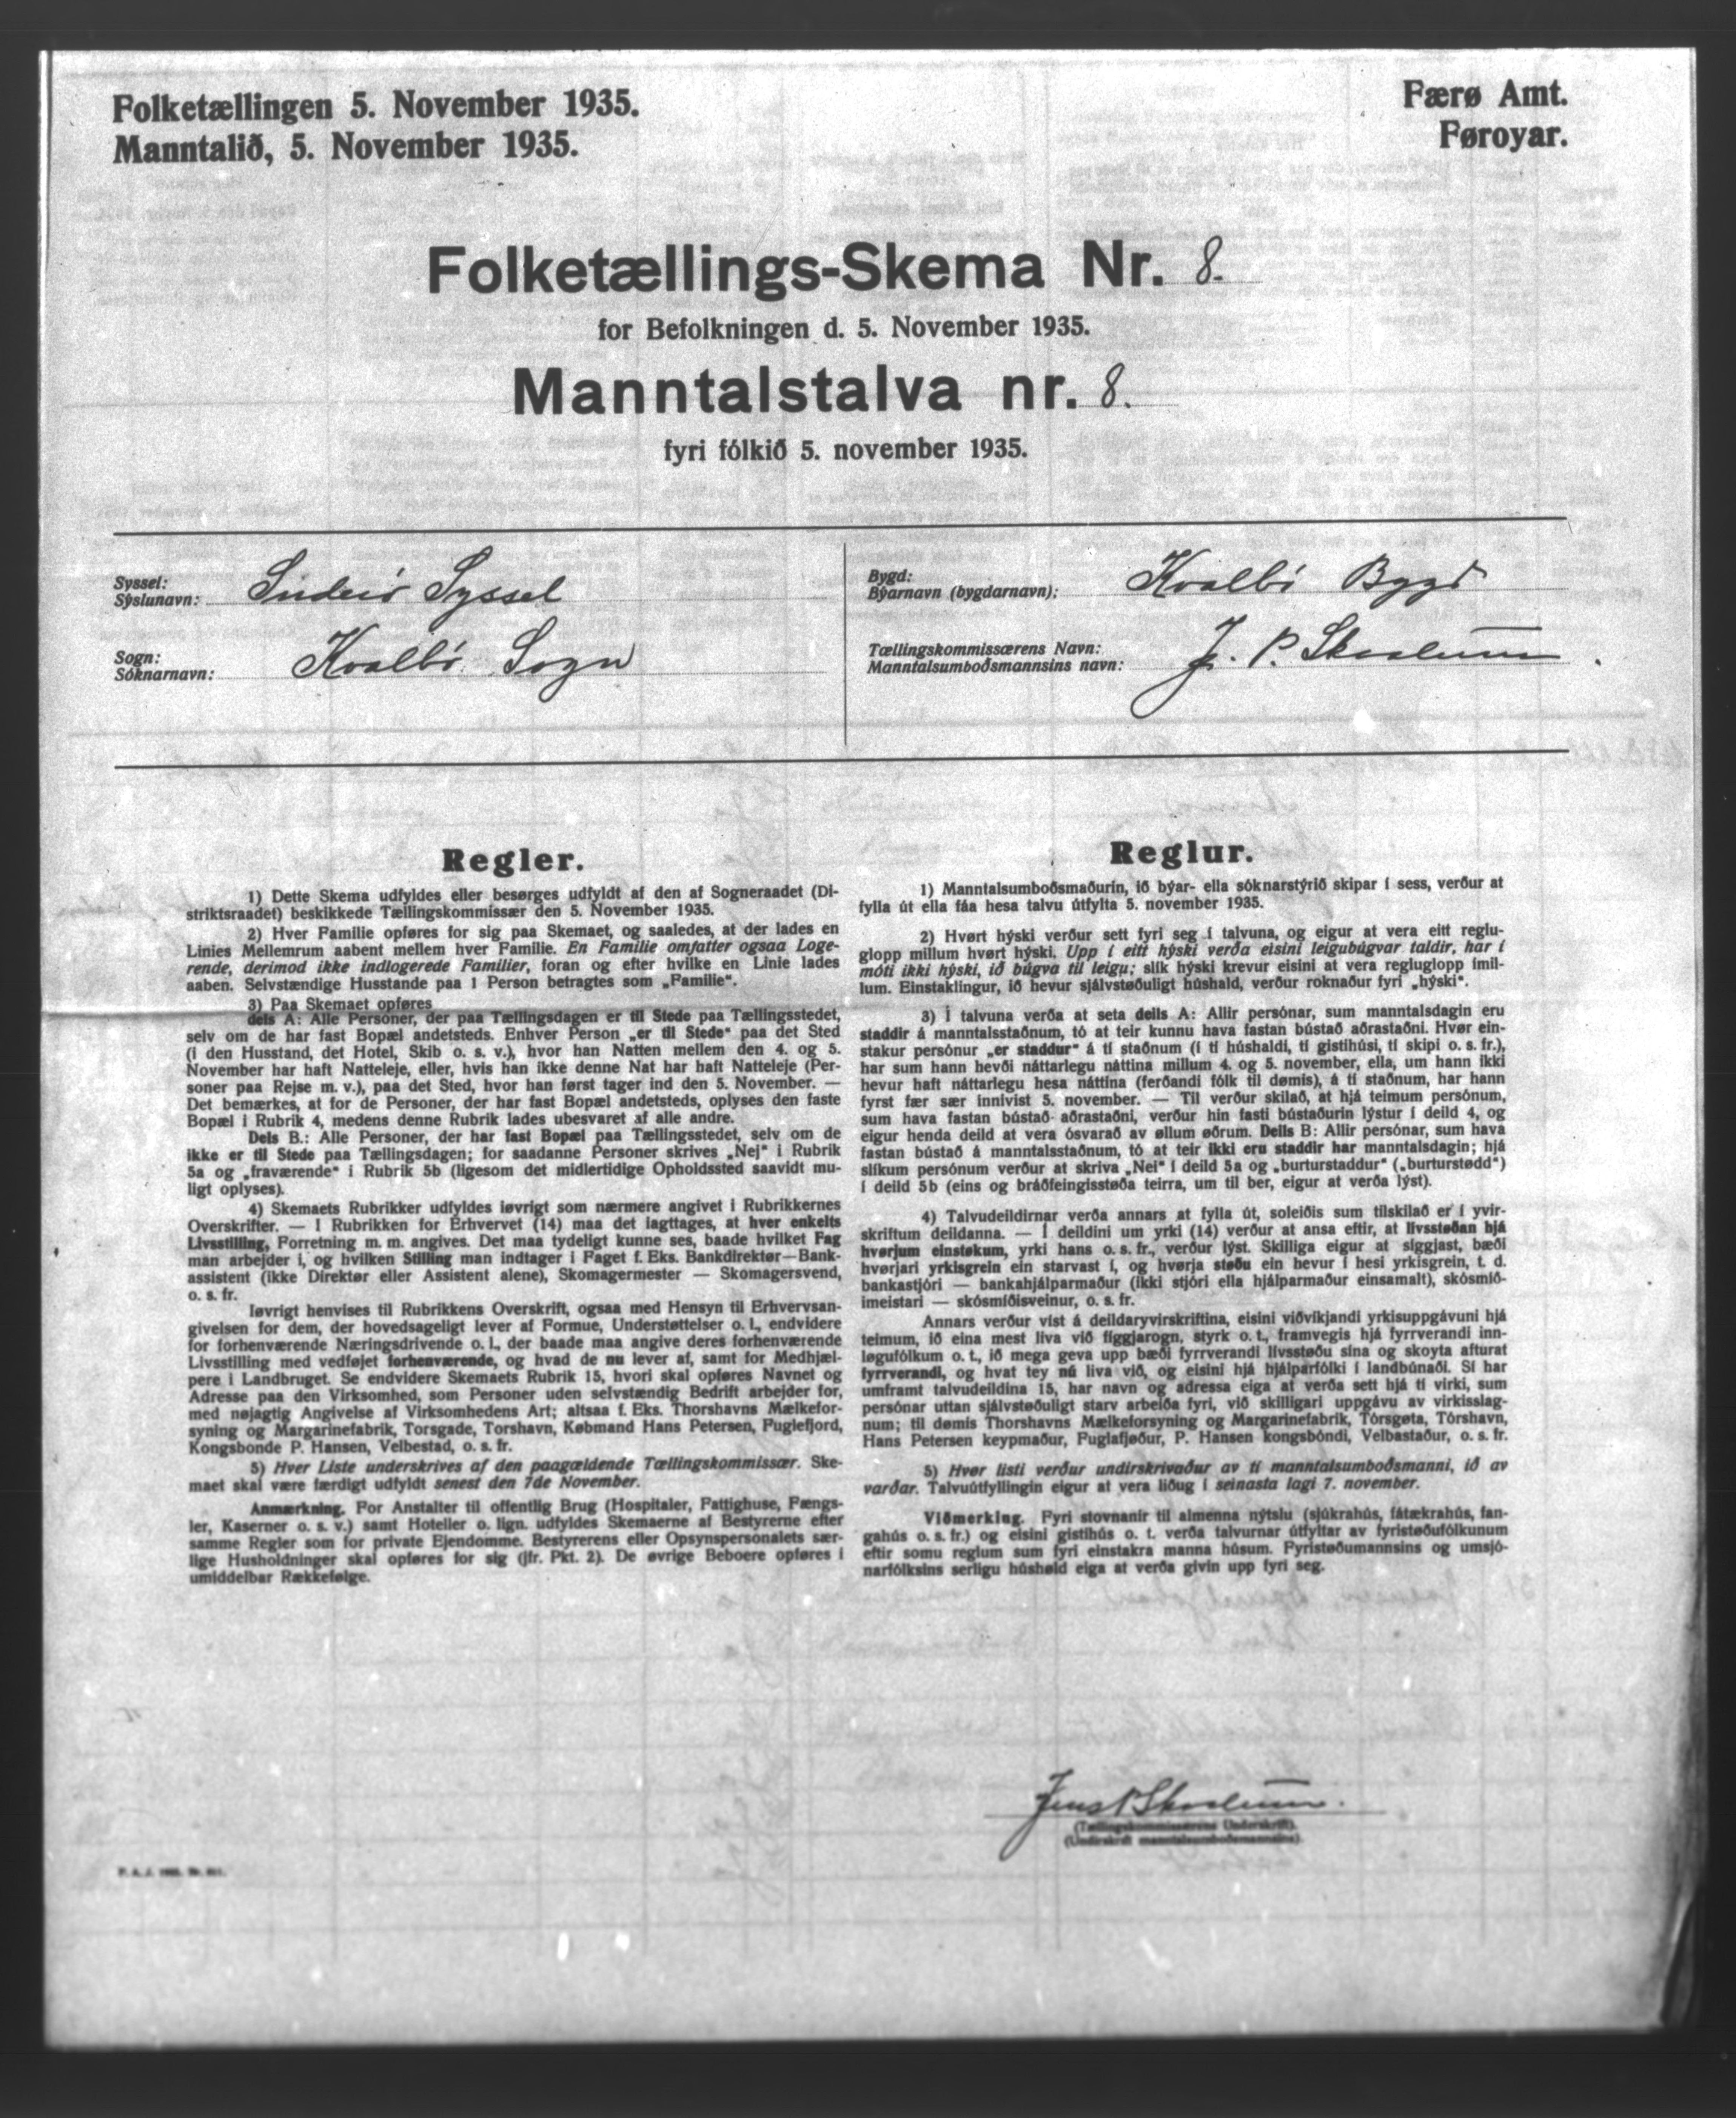 Folketællingen 5. November 1935.
Manntalið, 5. November 1935.
Færø Amt.
Føroyar.
Folketællings-Skema Nr. 8.
for Befolkningen d. 5. November 1935.
Manntalstalva nr. 8.
fyri fólkið 5. november 1935.
Syssel:
Sýslunavn: Suderø Syssel
Sogn:
Sóknarnavn: Kvalbø Sogn
Bygd:
Býarnavn (bygdarnavn): Kvalbø Bygd
Tællingskommissærens Navn:
Manntalsumboðsmannsins navn: J. P. Skaalum
Regler.
1) Dette Skema udfyldes eller besørges udfyldt af den af Sogneraadet (Di-
striktsraadet) beskikkede Tællingskommissær den 5. November 1935.
2) Hver Familie opføres for sig paa Skemaet, og saaledes, at der lades en
Linies Mellemrum aabent mellem hver Familie. En Familie omfatter ogsaa Loge-
rende, derimod ikke indlogerede Familier, foran og efter hvilke en Linie lades
aaben. Selvstændige Husstande paa 1 Person betragtes som „Familie".
3) Paa Skemaet opføres
dels A: Alle Personer, der paa Tællingsdagen er til Stede paa Tællingsstedet,
selv om de har fast Bopæl andetsteds. Enhver Person „er til Stede" paa det Sted
(i den Husstand, det Hotel, Skib o. s. v.), hvor han Natten mellem den 4. og 5.
November har haft Natteleje, eller, hvis han ikke denne Nat har haft Natteleje (Per-
soner paa Rejse m. v.), paa det Sted, hvor han først tager ind den 5. November. —
Det bemærkes, at for de Personer, der har fast Bopæl andetsteds, oplyses den faste
Bopæl i Rubrik 4, medens denne Rubrik lades ubesvaret af alle andre.
Dels B.: Alle Personer, der har fast Bopæl paa Tællingsstedet, selv om de
ikke er til Stede paa Tællingsdagen; for saadanne Personer skrives „Nej" i Rubrik
5a og „fraværende" i Rubrik 5b (ligesom det midlertidige Opholdssted saavidt mu-
ligt oplyses).
4) Skemaets Rubrikker udfyldes iøvrigt som nærmere angivet i Rubrikkernes
Overskrifter. — I Rubrikken for Erhvervet (14) maa det iagttages, at hver enkelts
Livsstilling, Forretning m. m. angives. Det maa tydeligt kunne ses, baade hvilket Fag
man arbejder i, og hvilken Stilling man indtager i Faget f. Eks. Bankdirektør—Bank-
assistent (ikke Direktør eller Assistent alene), Skomagermester — Skomagersvend,
o. s. fr.
Iøvrigt henvises til Rubrikkens Overskrift, ogsaa med Hensyn til Erhvervsan-
givelsen for dem, der hovedsageligt lever af Formue, Understøttelser o. l., endvidere
for forhenværende Næringsdrivende o. l., der baade maa angive deres forhenværende
Livsstilling med vedføjet forhenværende, og hvad de nu lever af, samt for Medhjæl-
pere i Landbruget. Se endvidere Skemaets Rubrik 15, hvori skal opføres Navnet og
Adresse paa den Virksomhed, som Personer uden selvstændig Bedrift arbejder for,
med nøjagtig Angivelse af Virksomhedens Art; altsaa f. Eks. Thorshavns Mælkefor-
syning og Margarinefabrik, Torsgade, Torshavn, Købmand Hans Petersen, Fuglefjord,
Kongsbonde P. Hansen, Velbestad, o. s. fr.
5) Hver Liste underskrives af den paagældende Tællingskommissær. Ske-
maet skal være færdigt udfyldt senest den 7de November.
Anmærkning. For Anstalter til offentlig Brug (Hospitaler, Fattighuse, Fængs-
ler, Kaserner o. s. v.) samt Hoteller o. lign. udfyldes Skemaerne af Bestyrerne efter
samme Regler som for private Ejendomme. Bestyrerens eller Opsynspersonalets sær-
lige Husholdninger skal opføres for sig (jfr. Pkt. 2). De øvrige Beboere opføres i
umiddelbar Rækkefølge.
Reglur.
1) Manntalsumboðsmaðurin, ið býar- ella sóknarstýrið skipar í sess, verður at
fylla út ella fáa hesa talvu útfylta 5. november 1935.
2) Hvørt hýski verður sett fyri seg í talvuna, og eigur at vera eitt reglu-
glopp millum hvørt hýski. Upp í eitt hýski verða eisini leigubúgvar taldir, har í
móti ikki hýski, ið búgva til leigu; slík hýski krevur eisini at vera regluglopp ímil-
lum. Einstaklingur, ið hevur sjálvstøðuligt húshald, verður roknaður fyri „hýski".
3) Í talvuna verða at seta dells A: Allir persónar, sum manntalsdagin eru
staddir á manntalsstaðnum, tó at teir kunnu hava fastan bústað aðrastaðni. Hvør ein-
stakur persónur „er staddur" á tí staðnum (í tí húshaldi, tí gistihúsi, tí skipi o. s. fr.),
har sum hann hevði náttarlegu náttina millum 4. og 5. november, ella, um hann ikki
hevur haft náttarlegu hesa náttina (ferðandi fólk til dømis), á tí staðnum, har hann
fyrst fær sær innivist 5. november. — Til verður skilað, at hjá teimum persónum,
sum hava fastan bústað aðrastaðni, verður hin fasti bústaðurin lýstur í deild 4, og
eigur henda deild at vera ósvarað av øllum øðrum. Dells B: Allir persónar, sum hava
fastan bústað á manntalsstaðnum, tó at teir ikki eru staddir har manntalsdagin; hjá
slíkum persónum verður at skriva „Nei" í deild 5a og „burturstaddur" („burturstødd")
í deild 5b (eins og bráðfeingisstøða teirra, um til ber, eigur at verða lýst).
4) Talvudeildirnar verða annars at fylla út, soleiðis sum tilskilað er í yvir-
skriftum deildanna. — Í deildini um yrki (14) verður at ansa eftir, at livsstøðan hjá
hvørjum einstøkum, yrki hans o. s. fr., verður lýst. Skilliga eigur at siggjast, bæði
hvørjari yrkisgrein ein starvast í, og hvørja støðu ein hevur í hesi yrkisgrein, t. d.
bankastjóri — bankahjálparmaður (ikki stjóri ella hjálparmaður einsamalt), skósmið-
imeistari — skósmiðisveinur, o. s. fr.
Annars verður víst á deildaryvirskriftina, eisini viðvíkjandi yrkisuppgávuni hjá
teimum, ið eina mest liva við figgjarogn, styrk o. t., framvegis hjá fyrrverandi inn-
løgufólkum o. t., ið mega geva upp bæði fyrrverandi livsstøðu sína og skoyta afturat
fyrrverandi, og hvat tey nú liva við, og eisini hjá hjálparfólki í landbúnaði. Sí har
umframt talvudeildina 15, har navn og adressa eiga at verða sett hjá tí virki, sum
persónar uttan sjálvstøðuligt starv arbeiða fyri, við skilligari uppgávu av virkisslag-
num; til dømis Thorshavns Mælkeforsyning og Margarinefabrik, Tórsgøta, Tórshavn,
Hans Petersen keypmaður, Fuglafjøður, P. Hansen kongsbóndi, Velbastaður, o. s. fr.
5) Hvør listi verður undirskrivaður av tí manntalsumboðsmanni, ið av
varðar. Talvuútfyllingin eigur at vera liðug í seinasta lagi 7. november.
Viðmerking. Fyri stovnanir til almenna nýtslu (sjúkrahús, fátækrahús, fan-
gahús o. s. fr.) og eisini gistihús o. t. verða talvurnar útfyltar av fyristøðufólkunum
eftir somu reglum sum fyri einstakra manna húsum. Fyristøðumannsins og umsjó-
narfólksins serligu húshøld eiga at verða givin upp fyri seg.
Jens P Skaalum.
(Tællingskommissærens Underskrift).
(Undirskrift manntalsumboðsmannsins).